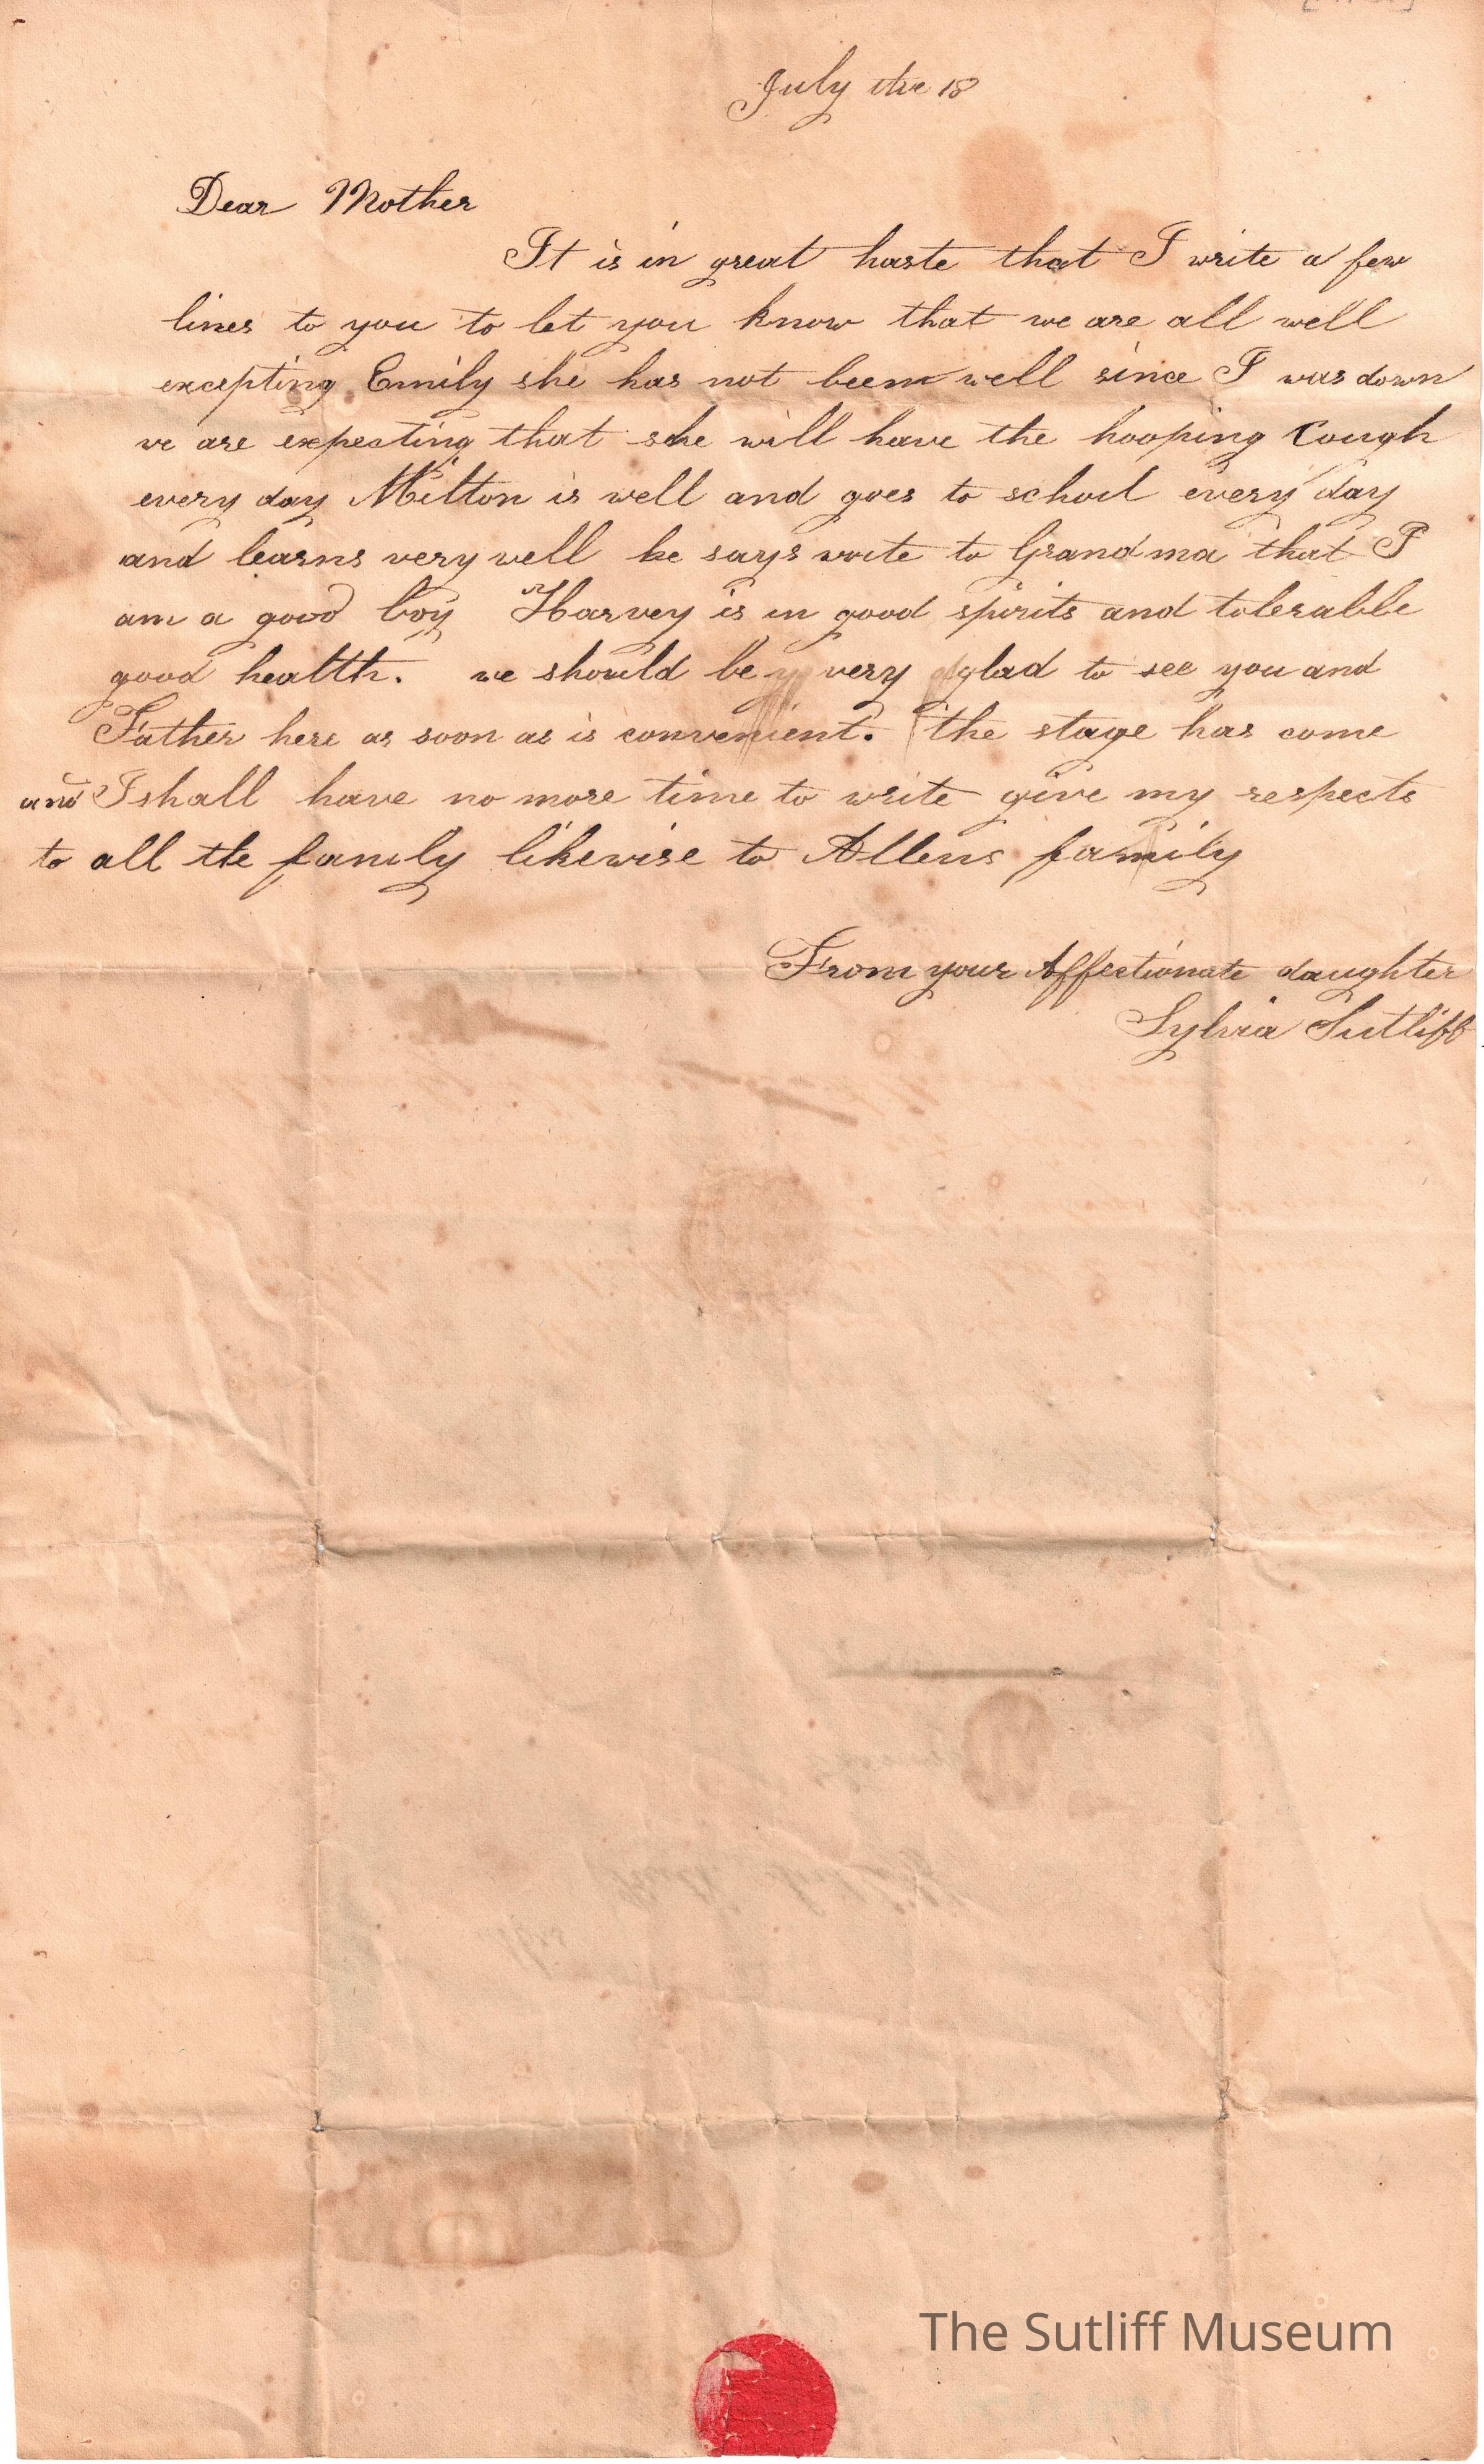 July the 18
Dear Mother
It is in great haste that I write a few
lines to you to let you know that we are all well
excepting Emily she has not been well since I was down
we are expecting that she will have the hooping Cough
every day Milton is well and goes to school every day
and learns very well he says write to Grandma that I
am a good boy Harvey is in good spirits and tolerable
good health. we should be very glad to see you and
Father here as soon as is convenient. the stage has come
and I shall have no more time to write give my respects
to all the family likewise to Allens family
From your Affectionate daughter
Sylvia Sutliff
The Sutliff Museum